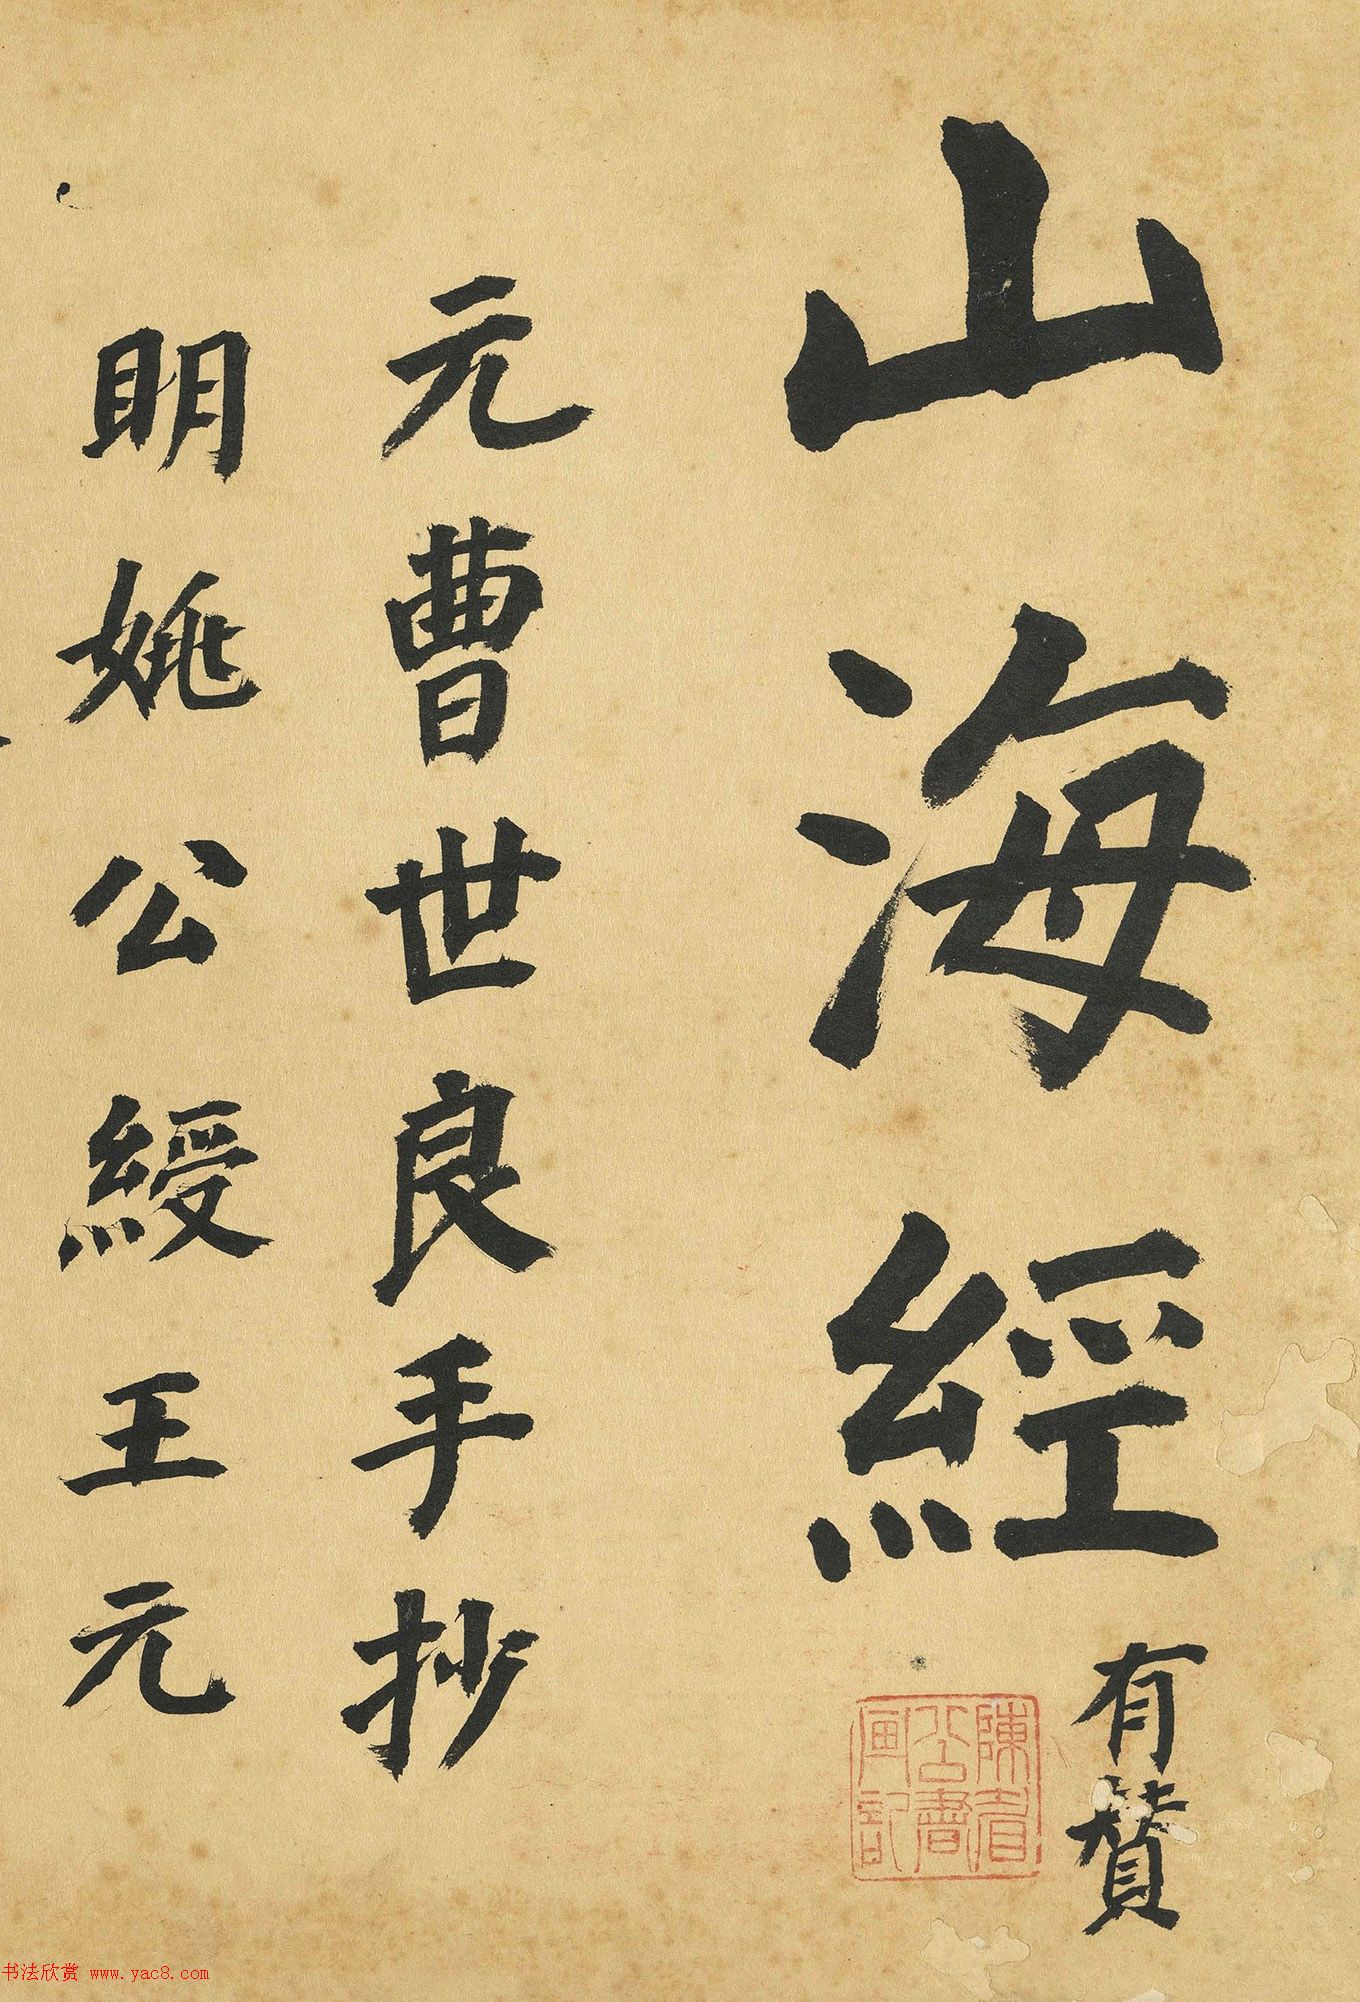 山海經
有贊
元曹世良手抄
明姚公綬王元
陳眉公書畫記
书法欣赏 www.yac8.com